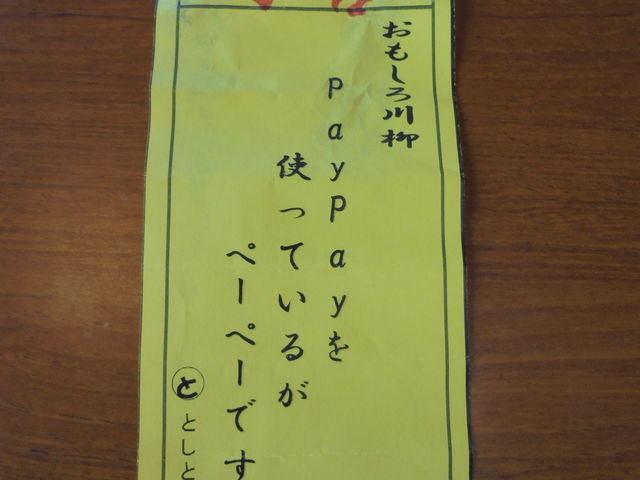 おもしろ川柳
PayPayを
使っているが
ペーペーです
と としと